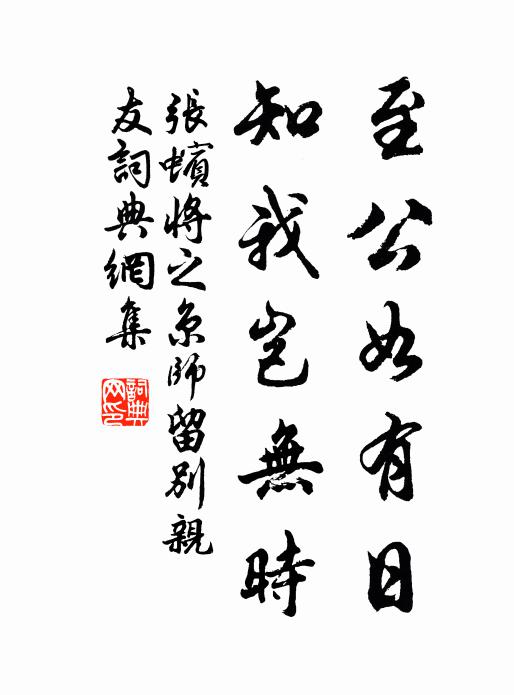 至公如有日
知我豈無時
張蠙將之京師留別親
友詞典網集
詞典網印